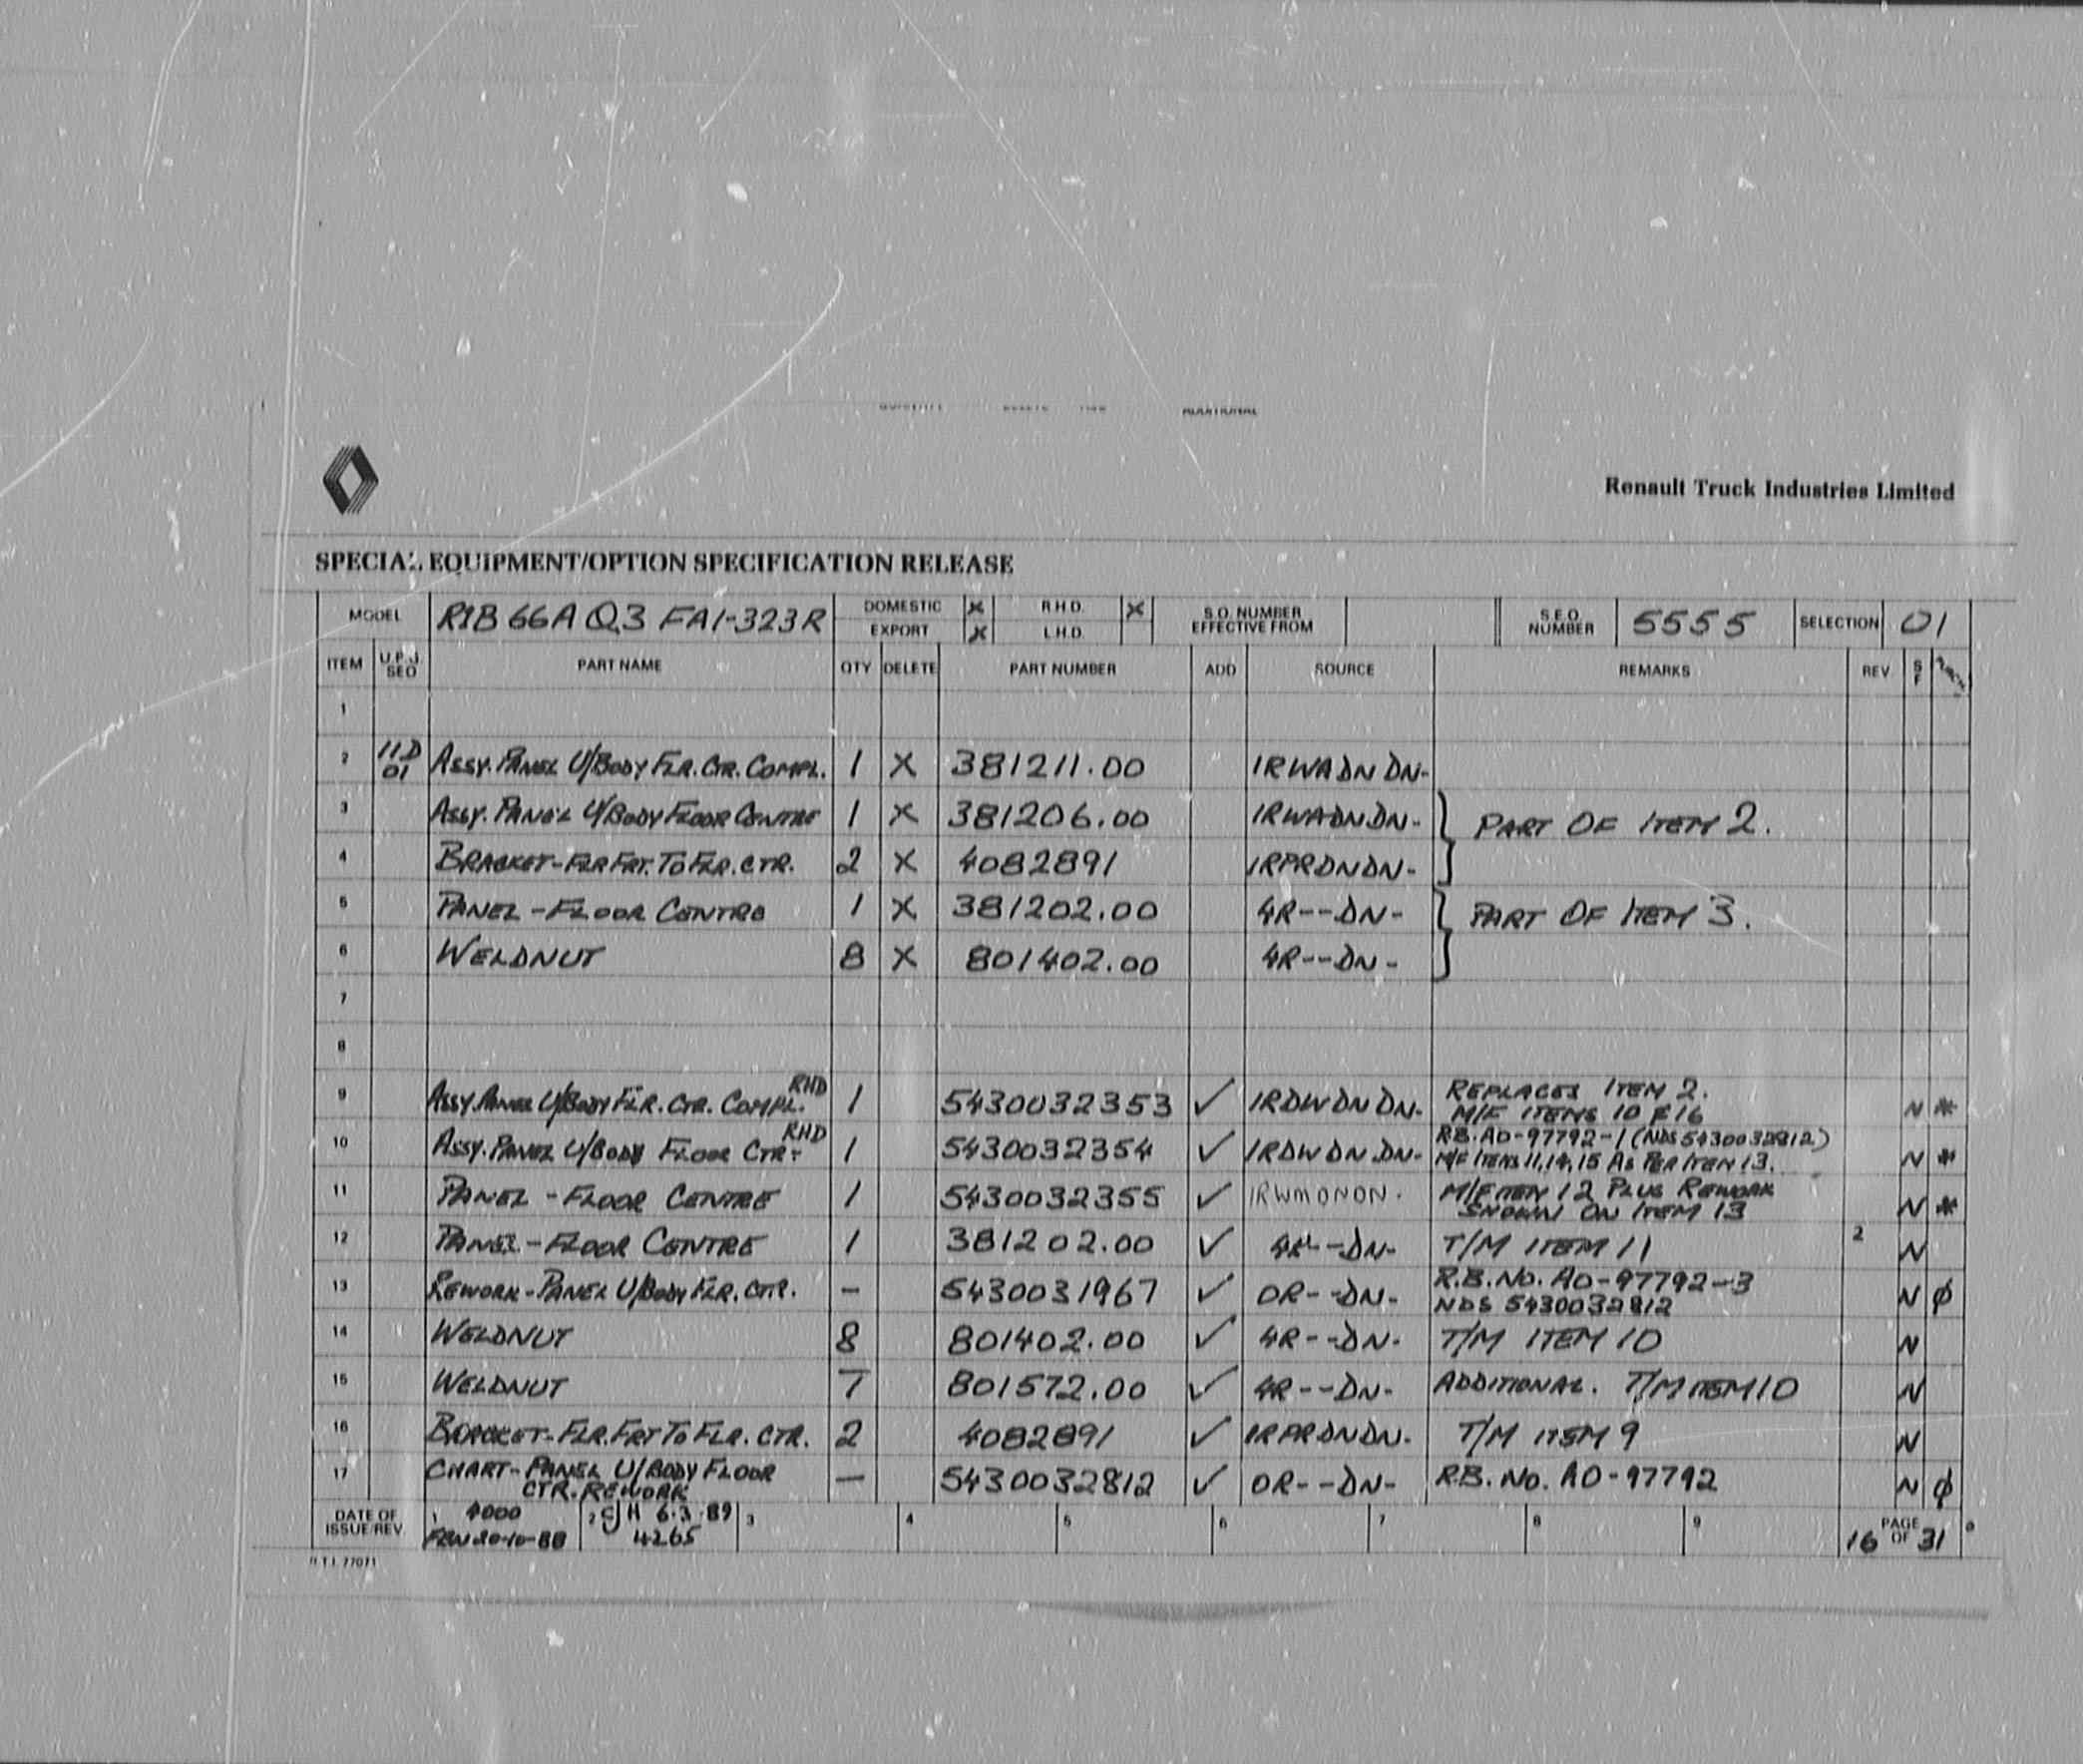 ADDITIONAL
Renault Truck Industries Limited
SPECIAL EQUIPMENT/OPTION SPECIFICATION RELEASE
MODEL R1B 66A Q3 FA1-323R DOMESTIC X R.H.D. X S.O. NUMBER EFFECTIVE FROM S.E.O. NUMBER 5555 SELECTION 01
EXPORT X L.H.D.
ITEM U.P.J. SEQ PART NAME QTY DELETE PART NUMBER ADD SOURCE REMARKS REV S F
1
2 11D 01 ASSY. PANEL U/BODY FLR. CTR. COMPL. 1 X 381211.00 1RWADNDN-
3 ASSY. PANEL U/BODY FLOOR CENTRE 1 X 381206.00 1RWADNDN- } PART OF ITEM 2.
4 BRACKET-FLR FRT. TO FLR. CTR. 2 X 4082891 1RPRDNDN-
5 PANEL-FLOOR CENTRE 1 X 381202.00 4R--DN- } PART OF ITEM 3.
6 WELDNUT 8 X 801402.00 4R--DN-
7
8
9 ASSY. PANEL U/BODY FLR. CTR. COMPL. RHD 1 5430032353 ✓ 1RDWDNDN- REPLACES ITEM 2. N *
M/F ITEMS 10 & 16
10 ASSY. PANEL U/BODY FLOOR CTR. RHD 1 5430032354 ✓ 1RDWDNDN- R.B. AO-97792-1 (NDS 5430032812) N *
M/F ITEMS 11, 14, 15 AS PER ITEM 13.
11 PANEL-FLOOR CENTRE 1 5430032355 ✓ 1RWMONON. M/F ITEM 12 PLUS REWORK N *
SHOWN ON ITEM 13
12 PANEL-FLOOR CENTRE 1 381202.00 ✓ 4R--DN- T/M ITEM 11 2 N
13 REWORK-PANEL U/BODY FLR. CTR. - 5430031967 ✓ OR--DN- R.B. NO. AO-97792-3 N ϕ
NDS 5430032812
14 WELDNUT 8 801402.00 ✓ 4R--DN- T/M ITEM 10 N
15 WELDNUT 7 801572.00 ✓ 4R--DN- ADDITIONAL. T/M ITEM 10 N
16 BRACKET-FLR. FRT TO FLR. CTR. 2 4082891 ✓ 1RPRDNDN- T/M ITEM 9 N
17 CHART-PANEL U/BODY FLOOR - 5430032812 ✓ OR--DN- R.B. NO. AO-97792 N ϕ
CTR. REWORK
DATE OF ISSUE/REV. 1 4000 2 CJH 6.3.89 3 4 5 6 7 8 9 PAGE 16 OF 31
20-10-88 4265
R.T.I. 77071